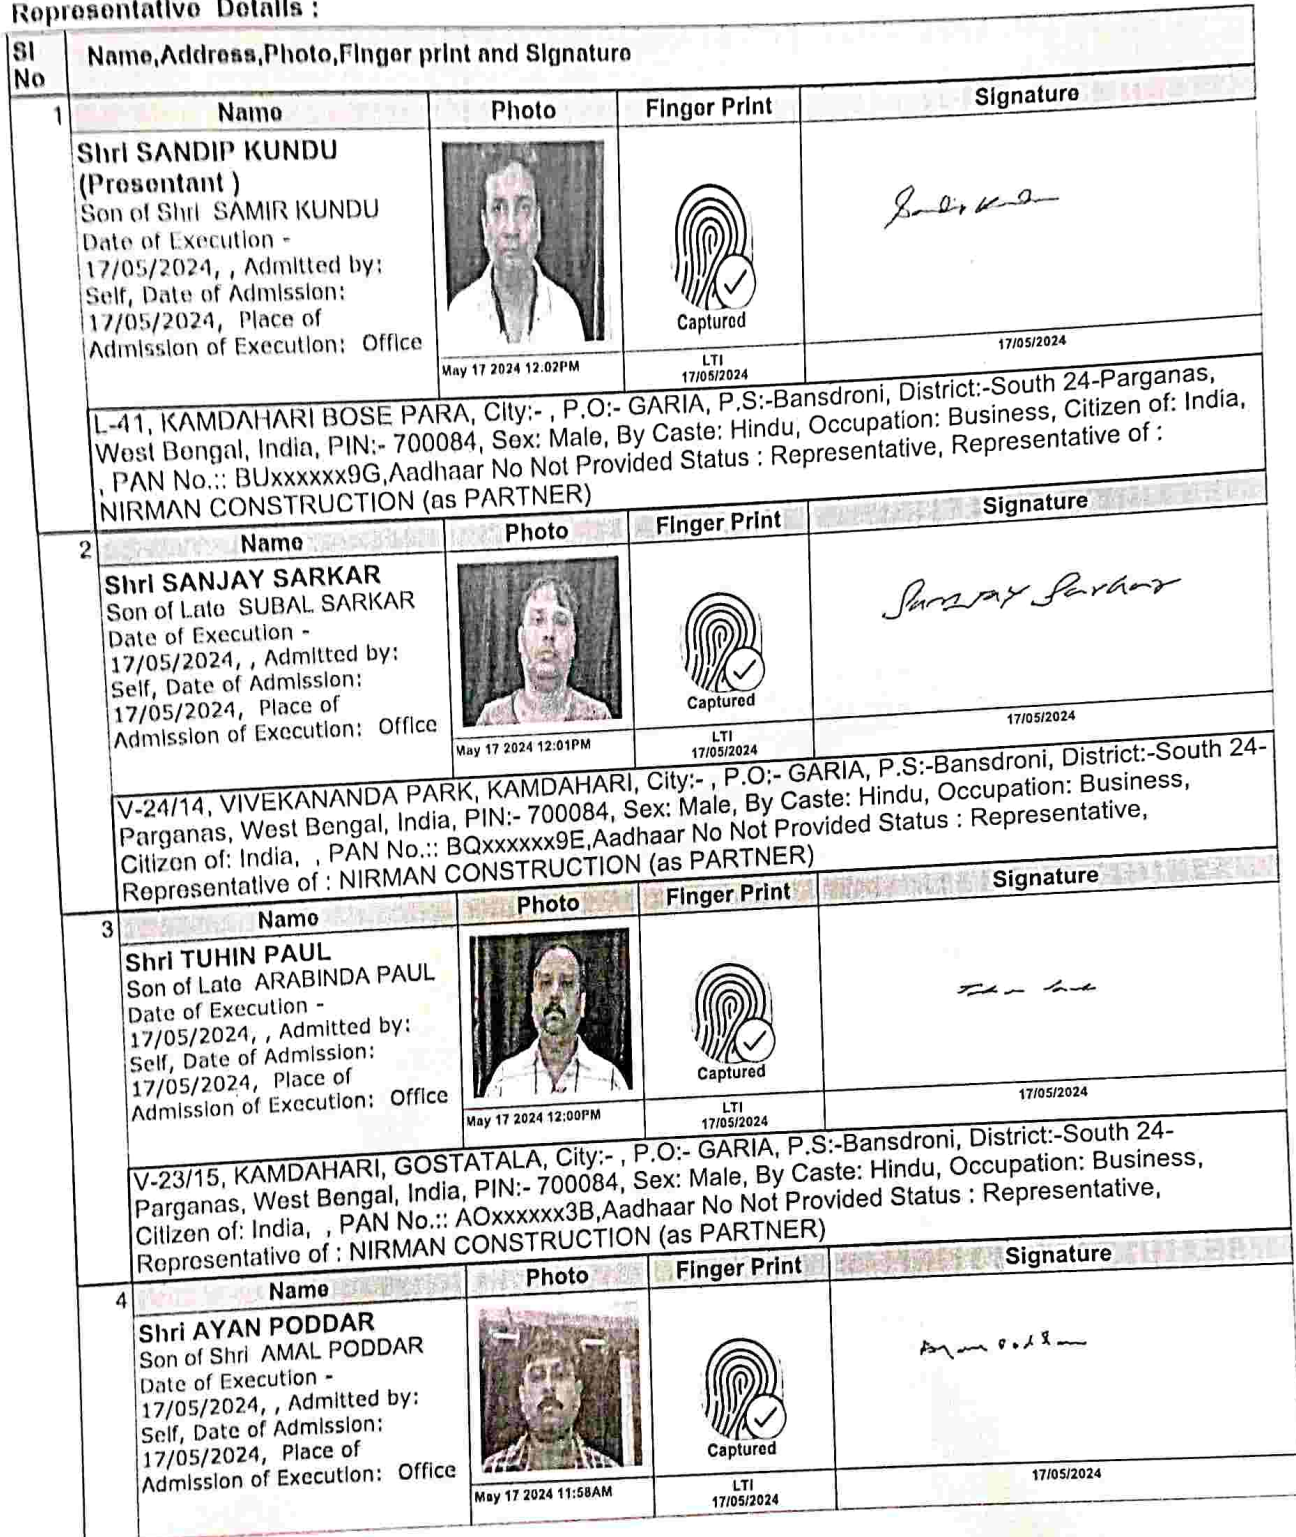 Representative Details :
SI No
Name,Address,Photo,Finger print and Signature
1
Name
Photo
Finger Print
Signature
Shri SANDIP KUNDU
(Presentant )
Son of Shri SAMIR KUNDU
Date of Execution -
17/05/2024, , Admitted by:
Self, Date of Admission:
17/05/2024, Place of
Admission of Execution: Office
Captured
Sandip Kundu
May 17 2024 12:02PM
LTI
17/05/2024
17/05/2024
L-41, KAMDAHARI BOSE PARA, City:- , P.O:- GARIA, P.S:-Bansdroni, District:-South 24-Parganas,
West Bengal, India, PIN:- 700084, Sex: Male, By Caste: Hindu, Occupation: Business, Citizen of: India,
, PAN No.:: BUxxxxxx9G,Aadhaar No Not Provided Status : Representative, Representative of :
NIRMAN CONSTRUCTION (as PARTNER)
2
Name
Photo
Finger Print
Signature
Shri SANJAY SARKAR
Son of Late SUBAL SARKAR
Date of Execution -
17/05/2024, , Admitted by:
Self, Date of Admission:
17/05/2024, Place of
Admission of Execution: Office
Captured
Sanjay Sarkar
May 17 2024 12:01PM
LTI
17/05/2024
17/05/2024
V-24/14, VIVEKANANDA PARK, KAMDAHARI, City:- , P.O:- GARIA, P.S:-Bansdroni, District:-South 24-
Parganas, West Bengal, India, PIN:- 700084, Sex: Male, By Caste: Hindu, Occupation: Business,
Citizen of: India, , PAN No.:: BQxxxxxx9E,Aadhaar No Not Provided Status : Representative,
Representative of : NIRMAN CONSTRUCTION (as PARTNER)
3
Name
Photo
Finger Print
Signature
Shri TUHIN PAUL
Son of Late ARABINDA PAUL
Date of Execution -
17/05/2024, , Admitted by:
Self, Date of Admission:
17/05/2024, Place of
Admission of Execution: Office
Captured
May 17 2024 12:00PM
LTI
17/05/2024
17/05/2024
V-23/15, KAMDAHARI, GOSTATALA, City:- , P.O:- GARIA, P.S:-Bansdroni, District:-South 24-
Parganas, West Bengal, India, PIN:- 700084, Sex: Male, By Caste: Hindu, Occupation: Business,
Citizen of: India, , PAN No.:: AOxxxxxx3B,Aadhaar No Not Provided Status : Representative,
Representative of : NIRMAN CONSTRUCTION (as PARTNER)
4
Name
Photo
Finger Print
Signature
Shri AYAN PODDAR
Son of Shri AMAL PODDAR
Date of Execution -
17/05/2024, , Admitted by:
Self, Date of Admission:
17/05/2024, Place of
Admission of Execution: Office
Captured
May 17 2024 11:58AM
LTI
17/05/2024
17/05/2024